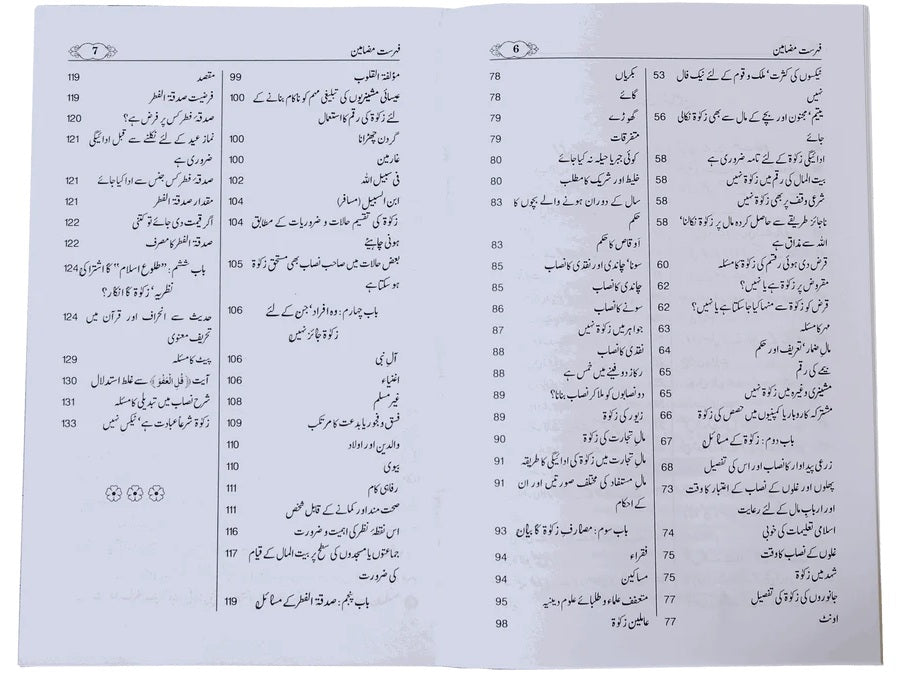 فہرست مضامین 6
ٹیکسوں کی کثرت‘ ملک و قوم کے لئے نیک فال 53
نہیں
یتیم‘ مجنون اور بچے کے مال سے بھی زکوٰۃ نکالی 56
جائے
ادائیگی زکوٰۃ کے لئے تامہ ضروری ہے 58
بیت المال کی رقم میں زکوٰۃ نہیں 58
شرعی وقف پر بھی زکوٰۃ نہیں 58
ناجائز طریقے سے حاصل کردہ مال پر زکوٰۃ نکالنا‘ 58
اللہ سے مذاق ہے
قرض دی ہوئی رقم کی زکوٰۃ کا مسئلہ 60
مقروض پر زکوٰۃ ہے یا نہیں؟ 62
قرض کو زکوٰۃ سے منہا کیا جا سکتا ہے یا نہیں؟ 62
مہر کا مسئلہ 63
مالِ ضمار‘ تعریف اور حکم 64
بیمے کی رقم 65
مشینری وغیرہ میں زکوٰۃ نہیں 65
مشترکہ کاروبار یا کمپنیوں میں حصص کی زکوٰۃ 66
باب دوم: زکوٰۃ کے مسائل 67
زرعی پیداوار کا نصاب اور اس کی تفصیل 68
پھلوں اور غلوں کے نصاب کے اعتبار کا وقت 73
اور ارباب مال کے لئے رعایت
اسلامی تعلیمات کی خوبی 74
غلوں کے نصاب کا وقت 75
شہد میں زکوٰۃ 75
جانوروں کی زکوٰۃ کی تفصیل 77
اونٹ 77
بکریاں 78
گائے 78
گھوڑے 79
متفرقات 79
کوئی جبر یا حیلہ نہ کیا جائے 80
خلیط اور شریک کا مطلب 80
سال کے دوران ہونے والے بچوں کا 83
حکم
اَوقاص کا حکم 83
سونا‘ چاندی اور نقدی کا نصاب 85
چاندی کا نصاب 85
سونے کا نصاب 86
جواہر میں زکوٰۃ نہیں 87
نقدی کا نصاب 88
رکاز دفینے میں خمس ہے 88
دو نصابوں کو ملا کر نصاب بنانا؟ 89
زیور کی زکوٰۃ 89
مالِ تجارت کی زکوٰۃ 90
مالِ تجارت میں زکوٰۃ کی ادائیگی کا طریقہ 91
مالِ مستفاد کی مختلف صورتیں اور ان 91
کے احکام
باب سوم: مصارف زکوٰۃ کا بیان 93
فقراء 94
مساکین 94
متعفف علماء و طلبائے علوم دینیہ 95
عاملین زکوٰۃ 98
فہرست مضامین 7
مؤلفۃ القلوب 99
عیسائی مشینریوں کی تبلیغی مہم کو ناکام بنانے کے 100
لئے زکوٰۃ کی رقم کا استعمال
گردن چھڑانا 100
غارمین 100
فی سبیل اللہ 102
ابن السبیل (مسافر) 104
زکوٰۃ کی تقسیم حالات و ضروریات کے مطابق 104
ہونی چاہیئے
بعض حالات میں صاحب نصاب بھی مستحق زکوٰۃ 105
ہو سکتا ہے
باب چہارم: وہ افراد‘ جن کے لئے 106
زکوٰۃ جائز نہیں
آلِ نبی 106
اغنیاء 106
غیر مسلم 108
فسق و فجور یا بدعت کا مرتکب 109
والدین اور اولاد 110
بیوی 110
رفاہی کام 111
صحت مند اور کمانے کے قابل شخص 111
اس نقطۂ نظر کی اہمیت و ضرورت 116
جماعتوں یا مسجدوں کی سطح پر بیت المال کے قیام 117
کی ضرورت
باب پنجم: صدقۃ الفطر کے مسائل 119
مقصد 119
فرضیت صدقۃ الفطر 119
صدقۂ فطر کس پر فرض ہے؟ 120
نماز عید کے لئے نکلنے سے قبل ادائیگی 121
ضروری ہے
صدقۂ فطر کس جنس سے ادا کیا جائے 121
مقدار صدقۃ الفطر 121
اگر قیمت دی جائے تو کتنی 122
صدقۃ الفطر کا مصرف 122
باب ششم: ”طلوع اسلام“ کا اشتراکی 124
نظریہ‘ زکوٰۃ کا انکار؟
حدیث سے انحراف اور قرآن میں 124
تحریف معنوی
پیٹ کا مسئلہ 129
آیت ﴿قُلِ الْعَفْوَ﴾ سے غلط استدلال 130
شرح نصاب میں تبدیلی کا مسئلہ 131
زکوٰۃ شرعاً عبادت ہے‘ ٹیکس نہیں 133